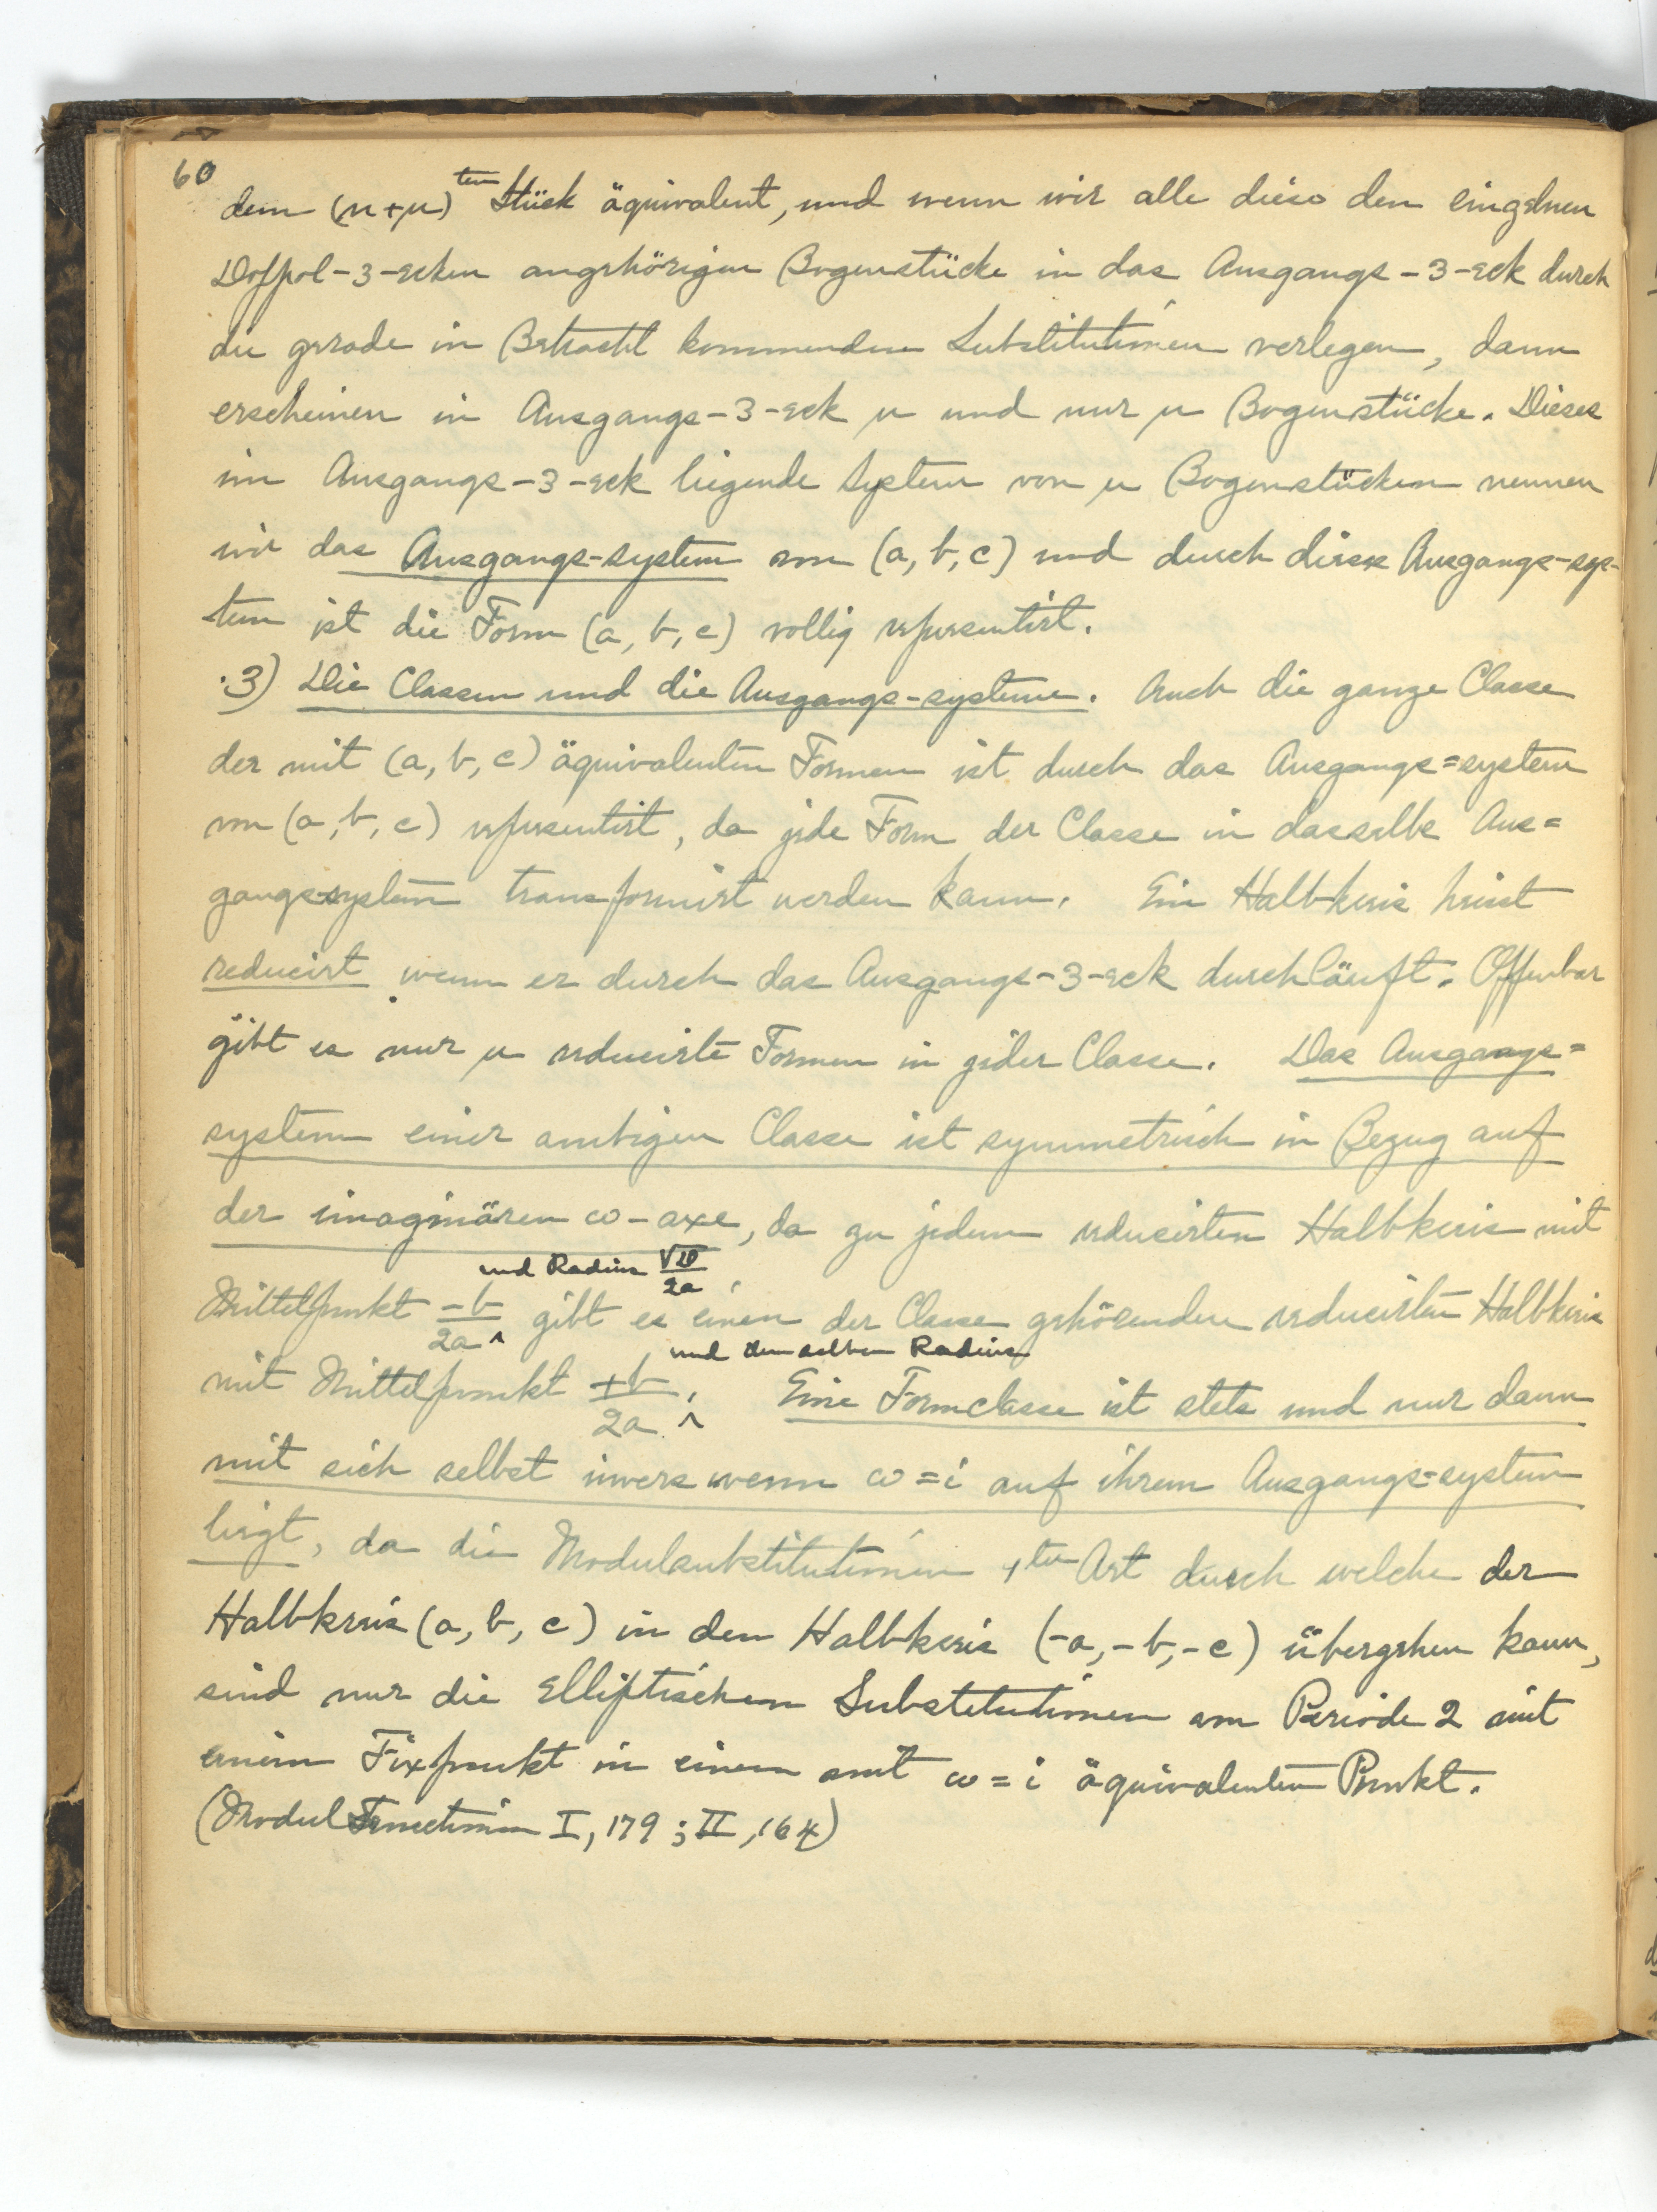 60
dem (n+μ)ten Stück äquivalent, und wenn wir alle diese den einzelnen
Doppel-3-ecken angehörigen Bogenstücke in das Ausgangs-3-eck durch
die gerade in Betracht kommenden Substitutionen verlegen, dann
erscheinen in Ausgangs-3-eck μ und nur μ Bogenstücke. Dieses
im Ausgangs-3-eck liegende System von μ Bogenstücken nennen
wir das Ausgangs-system von (a, b, c) und durch dieses Ausgangs-sys-
tem ist die Form (a, b, c) vollig representirt.
3) Die Classen und die Ausgangs-systeme. Auch die ganze Classe
der mit (a, b, c) äquivalenten Formen ist durch das Ausgangs=system
von (a, b, c) representirt, da jede Form der Classe in dasselbe Aus=
gangs-system transformirt werden kann. Ein Halbkreis heisst
reducirt wenn er durch das Ausgangs-3-eck durchläuft. Offenbar
gibt es nur μ reducirte Formen in jeder Classe. Das Ausgangs=
system einer ambigen Classe ist symmetrisch in Bezug auf
der imaginären ω-axe, da zu jedem reducirten Halbkreis mit
und Radius √D/2a
Mittelpunkt -b/2a ^ gibt es einen der Classe gehörenden reducirten Halbkreis
und demselben Radius
mit Mittelpunkt +b/2a ^. Eine Formclasse ist stets und nur dann
mit sich selbst invers wenn ω=i auf ihrem Ausgangs-system
liegt, da die Modulsubstitutionen 1ter Art durch welche der
Halbkreis (a, b, c) in den Halbkreis (-a,-b,-c) übergehen kann,
sind nur die Elliptischen Substitutionen von Periode 2 mit
einem Fixpunkt in einem mit ω=i äquivalenten Punkt.
(Modul Functionen I, 179; II, 164)